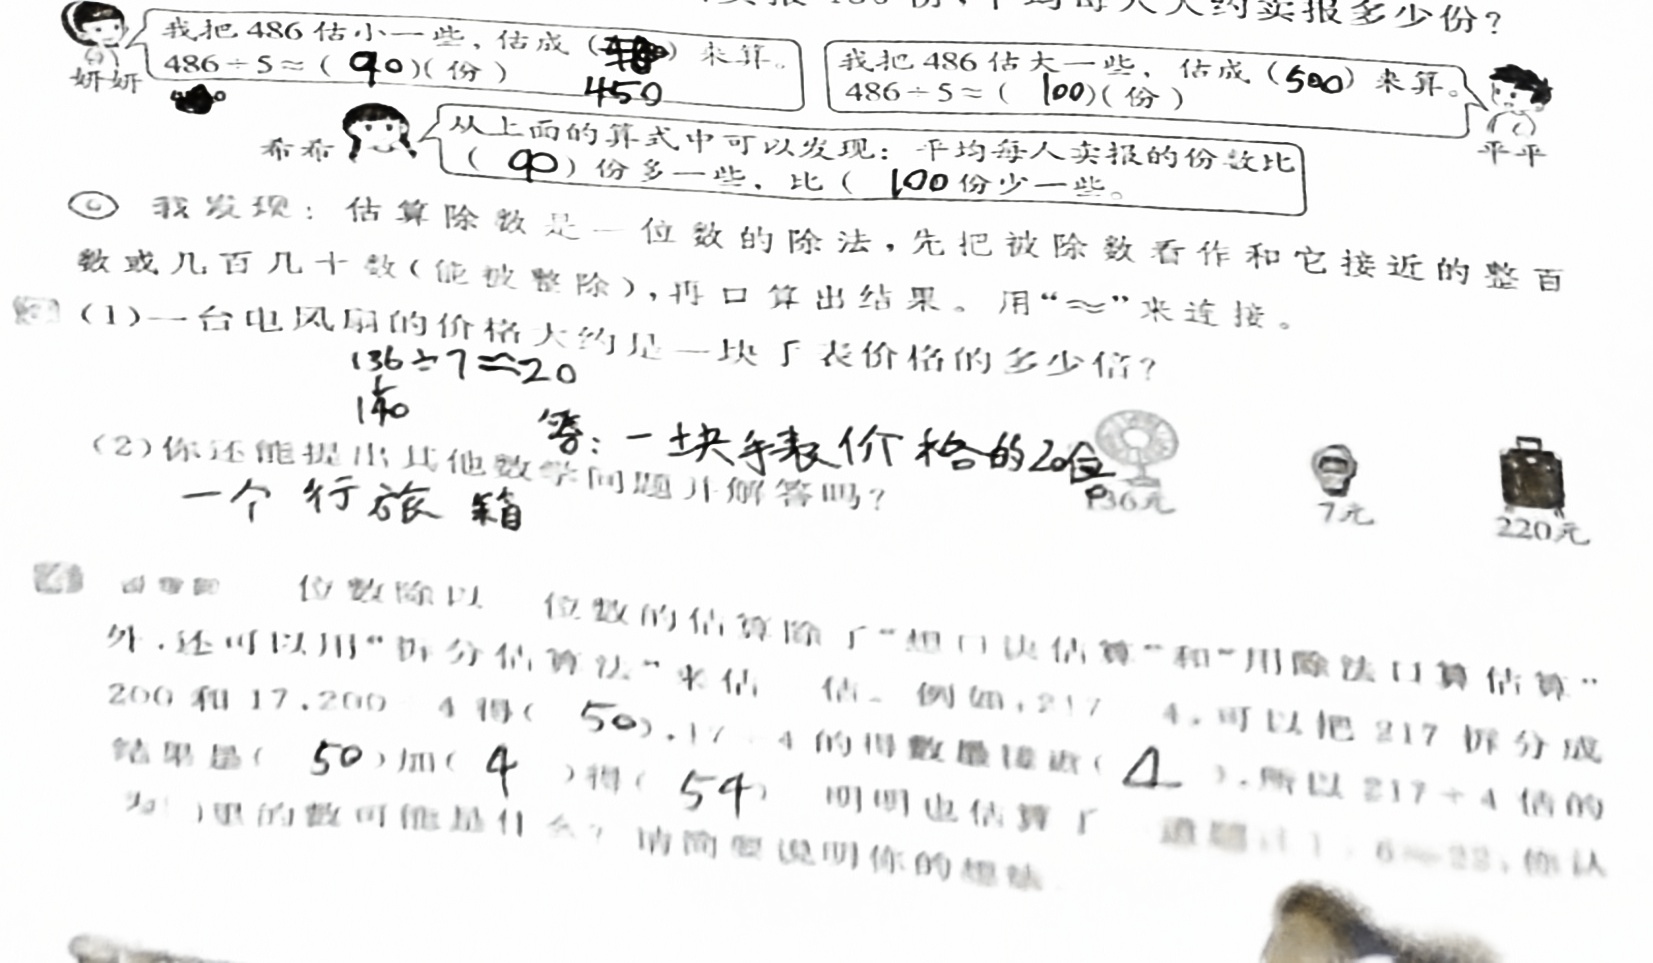 均每人大约卖报多少份?
我把486估小一些,估成( )来算。
486÷5≈( 90 )(份)
450
妍妍
我把486估大一些,估成(500)来算。
486÷5≈( 100)(份)
平平
希希
从上面的算式中可以发现:平均每人卖报的份数比
( 90 )份多一些,比( 100份少一些。
我发现:估算除数是一位数的除法,先把被除数看作和它接近的整百
数或几百几十数(能被整除),再口算出结果。用“≈”来连接。
(1)一台电风扇的价格大约是一块手表价格的多少倍?
136÷7≈20
140
答:一块手表价格的20倍
(2)你还能提出其他数学问题并解答吗?
一个 行旅 箱
136元
7元
220元
位数除以 位数的估算除了“想口诀估算”和“用除法口算估算”
外,还可以用“拆分估算法”来估 估。例如,217 4,可以把217拆分成
200和17,200 4得( 50 ),17÷4的得数最接近( 4 ),所以217÷4估的
结果是( 50 )加( 4 )得( 54 ) 明明也估算了 道题:( )÷6≈22,你认
为( )里的数可能是什么?请简要说明你的想法